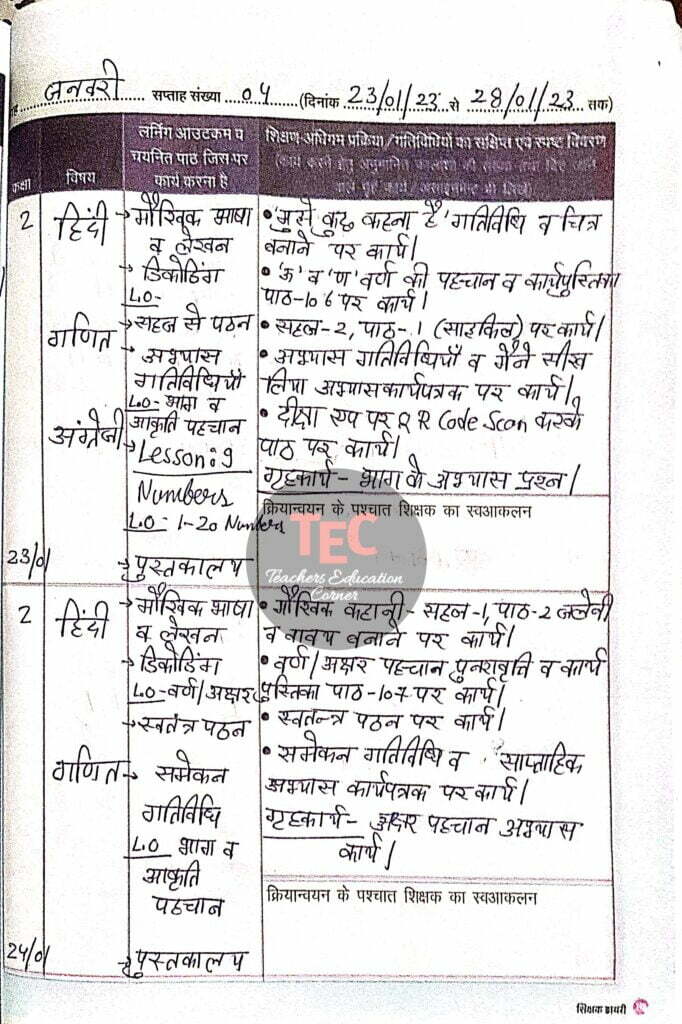 जनवरी सप्ताह संख्या ... 04 ... (दिनांक 23/01/23 से 28/01/23 तक)
कक्षा
विषय
लर्निंग आउटकम व
चयनित पाठ जिस पर
कार्य करना है
शिक्षण-अधिगम प्रक्रिया/गतिविधियों का संक्षिप्त एवं स्पष्ट विवरण
2
हिंदी
→मौखिक भाषा
व लेखन
→डिकोडिंग
LO-
→सहज से पठन
गणित
→ अभ्यास
गतिविधियाँ
LO- भाग व
आकृति पहचान
अंग्रेजी
→Lesson:9
Numbers
LO- 1-20 Numbers
→पुस्तकालय
23/01
• 'मुझे कुछ कहना है' गतिविधि व चित्र
बनाने पर कार्य।
• 'ऊ' व 'ण' वर्ण की पहचान व कार्यपुस्तिका
पाठ-106 पर कार्य।
• सहज-2, पाठ-1 (साइकिल) पर कार्य।
• अभ्यास गतिविधियाँ व मैंने सीख
लिया अभ्यासकार्यपत्रक पर कार्य।
• दीक्षा एप पर QR Code Scan करके
पाठ पर कार्य।
गृहकार्य- भाग के अभ्यास प्रश्न।
क्रियान्वयन के पश्चात शिक्षक का स्वआकलन
TEC
Teachers Education
Corner
2
हिंदी
→मौखिक भाषा
व लेखन
→डिकोडिंग
LO-वर्ण/अक्षर
→स्वतंत्र पठन
गणित→ समेकन
गतिविधि
LO भाग व
आकृति
पहचान
→पुस्तकालय
24/01
• मौखिक कहानी- सहज-1, पाठ-2 जलेबी
व वाक्य बनाने पर कार्य।
• वर्ण/अक्षर पहचान पुनरावृत्ति व कार्य
पुस्तिका पाठ-107 पर कार्य।
• स्वतन्त्र पठन पर कार्य।
• समेकन गतिविधि व साप्ताहिक
अभ्यास कार्यपत्रक पर कार्य।
गृहकार्य- अक्षर पहचान अभ्यास
कार्य।
क्रियान्वयन के पश्चात शिक्षक का स्वआकलन
शिक्षक डायरी